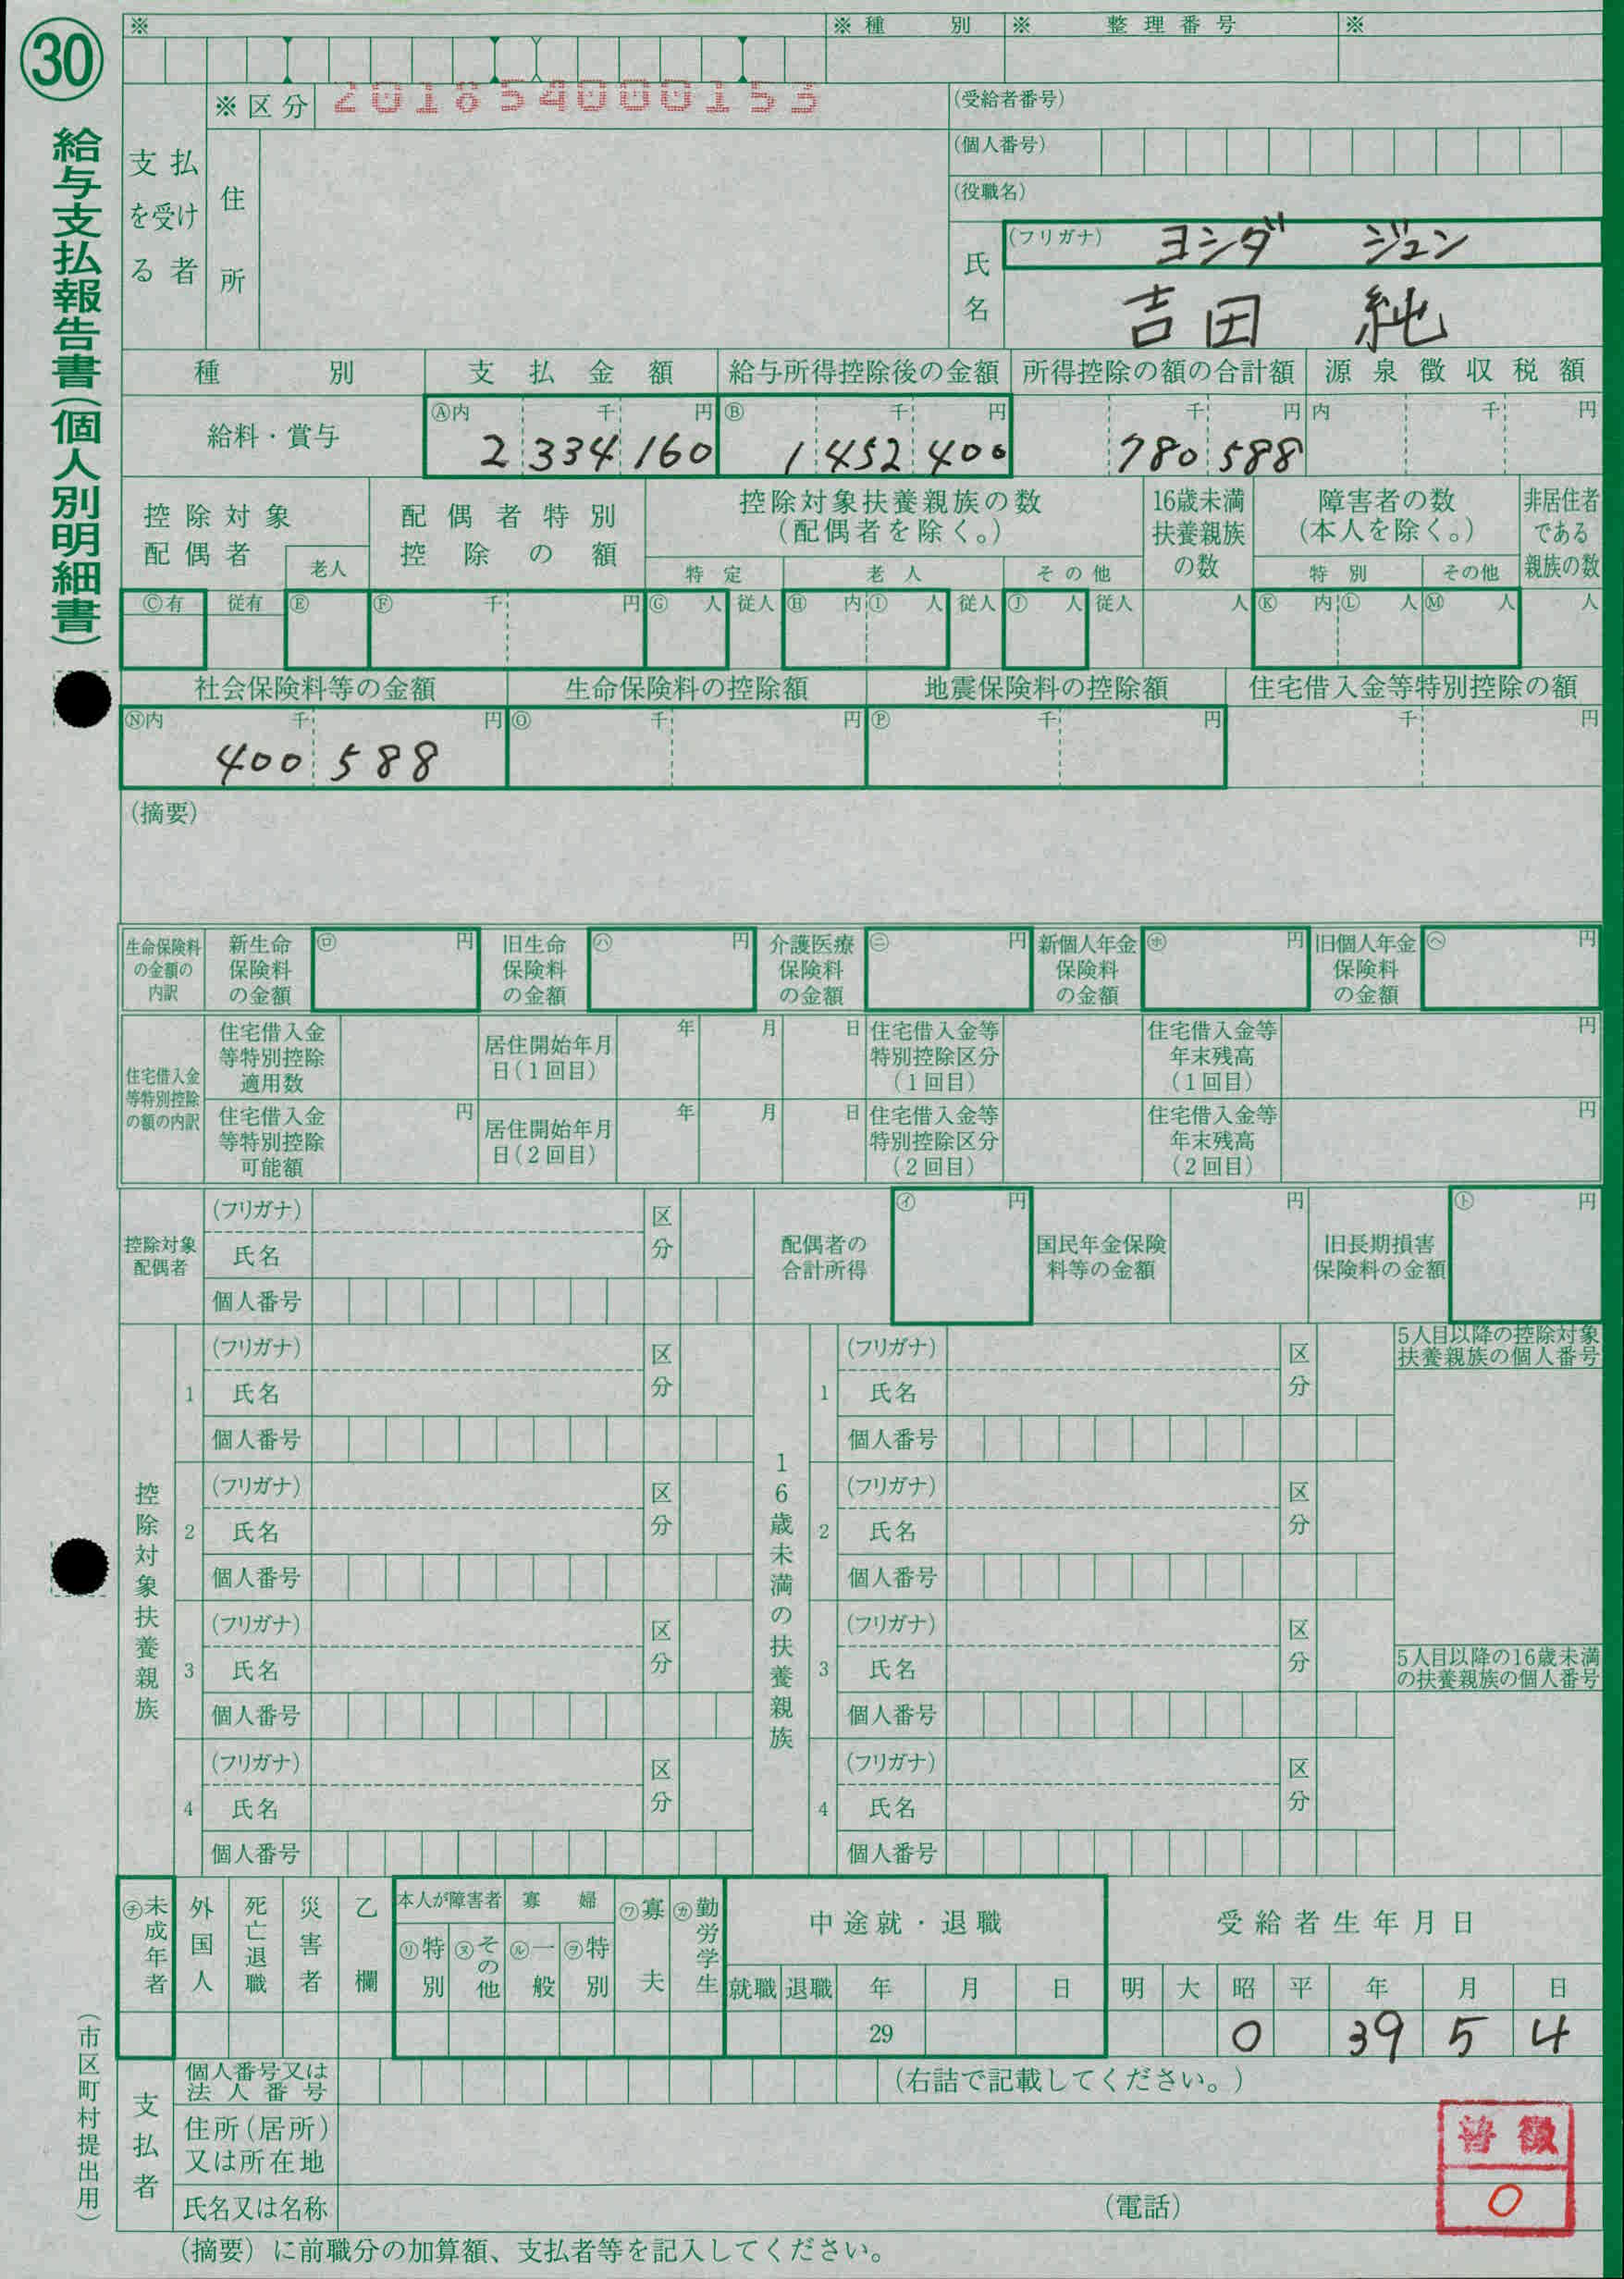 30
給与支払報告書(個人別明細書)
※ ※種別 ※ 整理番号 ※
※区分 201854000153
支払を受ける者
住所
(受給者番号)
(個人番号)
(役職名)
氏名
(フリガナ) ヨシダ ジュン
吉田 純
種別 支払金額 給与所得控除後の金額 所得控除の額の合計額 源泉徴収税額
給料・賞与
Ⓐ内 千 円 Ⓑ 千 円 千 円 内 千 円
2 334 160 1 452 400 780 588
控除対象配偶者 老人
配偶者特別控除の額
控除対象扶養親族の数(配偶者を除く。)
特定 老人 その他
16歳未満扶養親族の数
障害者の数(本人を除く。)
特別 その他
非居住者である親族の数
Ⓒ有 従有 Ⓔ Ⓕ 千 円 Ⓖ 人 従人 Ⓗ 内 Ⓘ 人 従人 Ⓙ 人 従人 人 Ⓚ 内 Ⓛ 人 Ⓜ 人 人
社会保険料等の金額 生命保険料の控除額 地震保険料の控除額 住宅借入金等特別控除の額
Ⓝ内 千 円 Ⓞ 千 円 Ⓟ 千 円 千 円
400 588
(摘要)
生命保険料の金額の内訳
新生命保険料の金額 ㋺ 円
旧生命保険料の金額 ㋩ 円
介護医療保険料の金額 ㋥ 円
新個人年金保険料の金額 ㋭ 円
旧個人年金保険料の金額 ㋬ 円
住宅借入金等特別控除の額の内訳
住宅借入金等特別控除適用数
居住開始年月日(1回目) 年 月 日
住宅借入金等特別控除区分(1回目)
住宅借入金等年末残高(1回目) 円
住宅借入金等特別控除可能額 円
居住開始年月日(2回目) 年 月 日
住宅借入金等特別控除区分(2回目)
住宅借入金等年末残高(2回目) 円
控除対象配偶者
(フリガナ)
氏名
区分
個人番号
配偶者の合計所得 ㋑ 円
国民年金保険料等の金額 円
旧長期損害保険料の金額 ㋣ 円
控除対象扶養親族
1 (フリガナ)
氏名
区分
個人番号
2 (フリガナ)
氏名
区分
個人番号
3 (フリガナ)
氏名
区分
個人番号
4 (フリガナ)
氏名
区分
個人番号
16歳未満の扶養親族
1 (フリガナ)
氏名
区分
個人番号
2 (フリガナ)
氏名
区分
個人番号
3 (フリガナ)
氏名
区分
個人番号
4 (フリガナ)
氏名
区分
個人番号
5人目以降の控除対象扶養親族の個人番号
5人目以降の16歳未満の扶養親族の個人番号
㋠未成年者 外国人 死亡退職 災害者 乙欄
本人が障害者 ㋷特別 ㋦その他
寡婦 ㋸一般 ㋾特別
㋻寡夫 ㋕勤労学生
中途就・退職
就職 退職 年 月 日
29
受給者生年月日
明 大 昭 平 年 月 日
0 39 5 4
支払者
個人番号又は法人番号 (右詰で記載してください。)
住所(居所)又は所在地
氏名又は名称 (電話)
普徴
○
(摘要)に前職分の加算額、支払者等を記入してください。
(市区町村提出用)